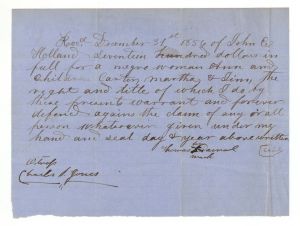 Recvd December 31st 1856 of John C
Holland Seventeen Hundred dollars in
full for a negro woman Ann and
Children Carter, Martha & Linn, the
right and title of which I do by
these presents warrant and forever
defend against the claim of any or all
person Whatsoever given under my
hand and seal day & year above written
Thomas
mark
Witness
Charles A Jones